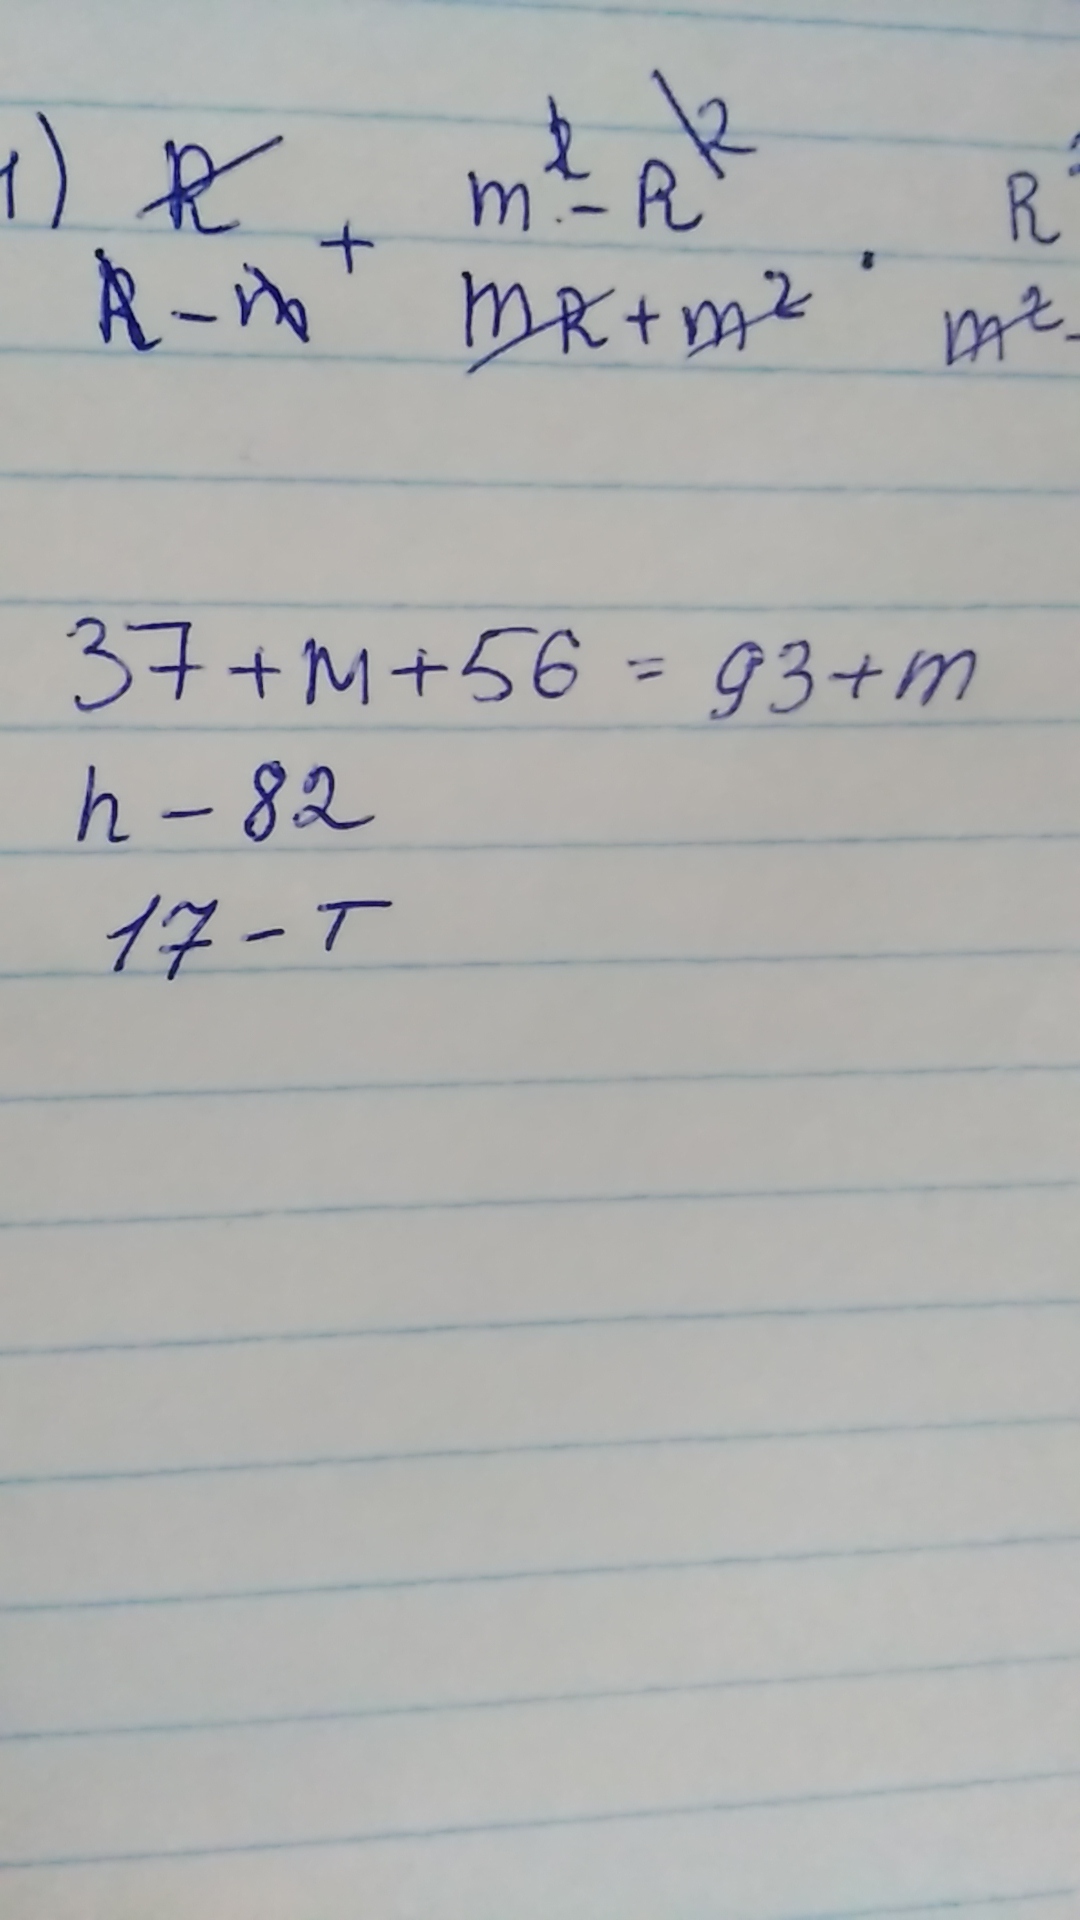 1) R + m² - R² R²
R - m mR + m² · m² -
37 + m + 56 = 93 + m
h - 82
17 - T